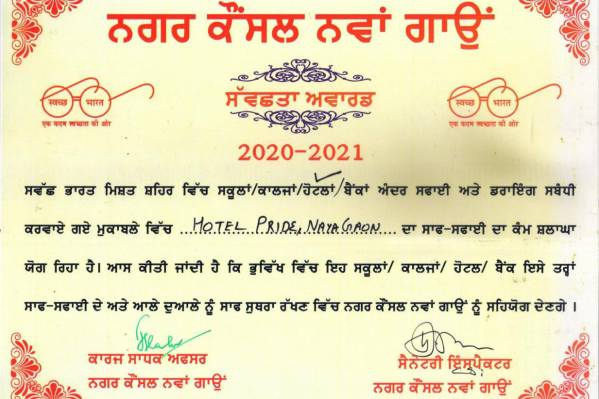 ਨਗਰ ਕੌਂਸਲ ਨਵਾਂ ਗਾਉਂ
स्वच्छ भारत
एक कदम स्वच्छता की ओर
ਸਵੱਛਤਾ ਅਵਾਰਡ
स्वच्छ भारत
एक कदम स्वच्छता की ओर
2020-2021
ਸਵੱਛ ਭਾਰਤ ਮਿਸ਼ਤ ਸ਼ਹਿਰ ਵਿੱਚ ਸਕੂਲਾਂ/ਕਾਲਜਾਂ/ਹੋਟਲਾਂ/ਬੈਂਕਾਂ ਅੰਦਰ ਸਫਾਈ ਅਤੇ ਡਰਾਇੰਗ ਸਬੰਧੀ
ਕਰਵਾਏ ਗਏ ਮੁਕਾਬਲੇ ਵਿੱਚ ...HOTEL PRIDE, NAYAGAON... ਦਾ ਸਾਫ-ਸਫਾਈ ਦਾ ਕੰਮ ਸ਼ਲਾਘਾ
ਯੋਗ ਰਿਹਾ ਹੈ। ਆਸ ਕੀਤੀ ਜਾਂਦੀ ਹੈ ਕਿ ਭੁਵਿੱਖ ਵਿੱਚ ਇਹ ਸਕੂਲਾਂ/ ਕਾਲਜਾਂ/ ਹੋਟਲ/ ਬੈਂਕ ਇਸੇ ਤਰ੍ਹਾਂ
ਸਾਫ-ਸਫਾਈ ਦੇ ਅਤੇ ਆਲੇ ਦੁਆਲੇ ਨੂੰ ਸਾਫ ਸੁਥਰਾ ਰੱਖਣ ਵਿੱਚ ਨਗਰ ਕੌਂਸਲ ਨਵਾਂ ਗਾਉਂ ਨੂੰ ਸਹਿਯੋਗ ਦੇਣਗੇ।
ਕਾਰਜ ਸਾਧਕ ਅਫਸਰ
ਨਗਰ ਕੌਂਸਲ ਨਵਾਂ ਗਾਉਂ
ਸੈਨੇਟਰੀ ਇੰਸਪੈਕਟਰ
ਨਗਰ ਕੌਂਸਲ ਨਵਾਂ ਗਾਉਂ